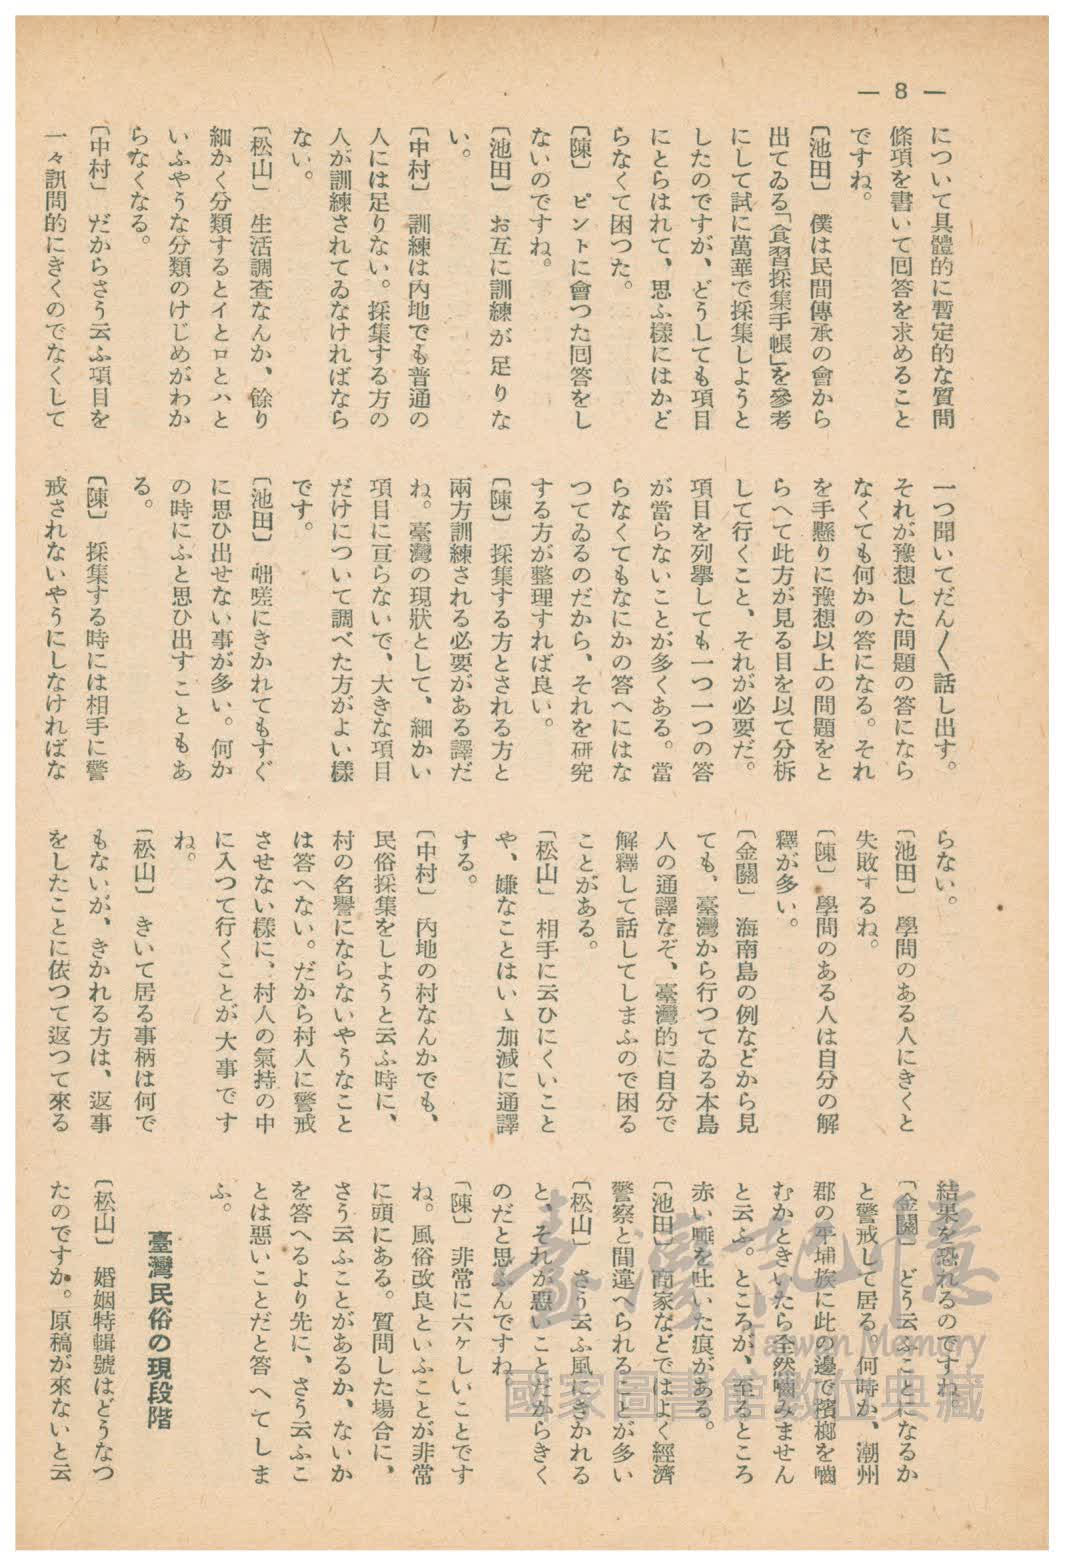 — 8 —
について具體的に暫定的な質問
條項を書いて回答を求めること
ですね。
〔池田〕　僕は民間傳承の會から
出てゐる「食習採集手帳」を參考
にして試に萬華で採集しようと
したのですが、どうしても項目
にとらはれて、思ふ樣にはかど
らなくて困つた。
〔陳〕　ピントに會つた回答をし
ないのですね。
〔池田〕　お互に訓練が足りな
い。
〔中村〕　訓練は内地でも普通の
人には足りない。採集する方の
人が訓練されてゐなければなら
ない。
〔松山〕　生活調査なんか、餘り
細かく分類するとイとロとハと
いふやうな分類のけじめがわか
らなくなる。
〔中村〕　だからさう云ふ項目を
一々訊問的にきくのでなくして
一つ聞いてだん〱話し出す。
それが豫想した問題の答になら
なくても何かの答になる。それ
を手懸りに豫想以上の問題をと
らへて此方が見る目を以て分析
して行くこと、それが必要だ。
項目を列擧しても一つ一つの答
が當らないことが多くある。當
らなくてもなにかの答へにはな
つてゐるのだから、それを研究
する方が整理すれば良い。
〔陳〕　採集する方とされる方と
兩方訓練される必要がある譯だ
ね。臺灣の現狀として、細かい
項目に亘らないで、大きな項目
だけについて調べた方がよい樣
です。
〔池田〕　咄嗟にきかれてもすぐ
に思ひ出せない事が多い。何か
の時にふと思ひ出すこともあ
る。
〔陳〕　採集する時には相手に警
戒されないやうにしなければな
らない。
〔池田〕　學問のある人にきくと
失敗するね。
〔陳〕　學問のある人は自分の解
釋が多い。
〔金關〕　海南島の例などから見
ても、臺灣から行つてゐる本島
人の通譯なぞ、臺灣的に自分で
解釋して話してしまふので困る
ことがある。
〔松山〕　相手に云ひにくいこと
や、嫌なことはいゝ加減に通譯
する。
〔中村〕　内地の村なんかでも、
民俗採集をしようと云ふ時に、
村の名譽にならないやうなこと
は答へない。だから村人に警戒
させない樣に、村人の氣持の中
に入つて行くことが大事です
ね。
〔松山〕　きいて居る事柄は何で
もないが、きかれる方は、返事
をしたことに依つて返つて來る
結果を恐れるのですね。
〔金關〕　どう云ふことになるか
と警戒して居る。何時か、潮州
郡の平埔族に此の邊で檳榔を嚙
むかときいたら全然嚙みません
と云ふ。ところが、至るところ
赤い唾を吐いた痕がある。
〔池田〕　商家などではよく經濟
警察と間違へられることが多い
〔松山〕　さう云ふ風にきかれる
と、それが惡いことだからきく
のだと思ふんですね。
〔陳〕　非常に六ヶしいことです
ね。風俗改良といふことが非常
に頭にある。質問した場合に、
さう云ふことがあるか、ないか
を答へるより先に、さう云ふこ
とは惡いことだと答へてしま
ふ。
臺灣民俗の現段階
〔松山〕　婚姻特輯號はどうなつ
たのですか。原稿が來ないと云
臺灣記憶
Taiwan Memory
國家圖書館數位典藏